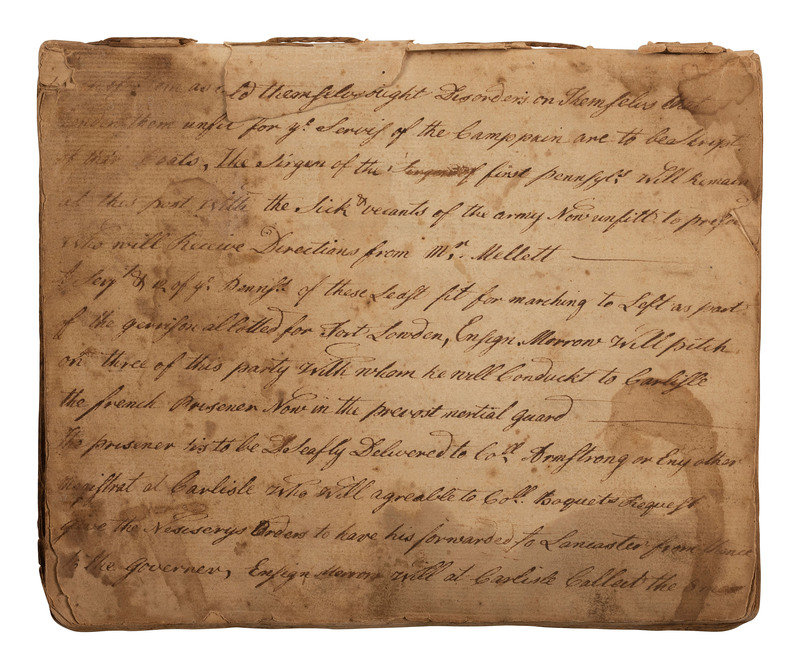 as old themselves Slight Disorders on Themselves that
render them unfit for yͤ Servis of the Camppain are to be Stript
of their Coats, The Sirgen of the first pennsylᵃ will remain
at this post with the Sick & vecants of the army Now unfitt to
Who will Receive Directions from Mʳ. Mellett
A Serjᵗ & 12 of yͤ Pennsᵃ of these Least fit for marching to Left as part
of the gerrison allotted for Fort Lowden, Ensign Morrow will pitch
on three of this party with whom he will Conduckt to Carlisle
the french Prisener Now in the prevost mertial guard
The prisener is to be Deleafly Delivered to Collˡ Armstrong or Eny other
Magistrat at Carlisle who will agreable to Collˡ Boquets Request
give the Nesiserys Orders to have his forwarded to Lancaster from thence
to the Governer, Ensign Morrow will at Carlisle Callect the